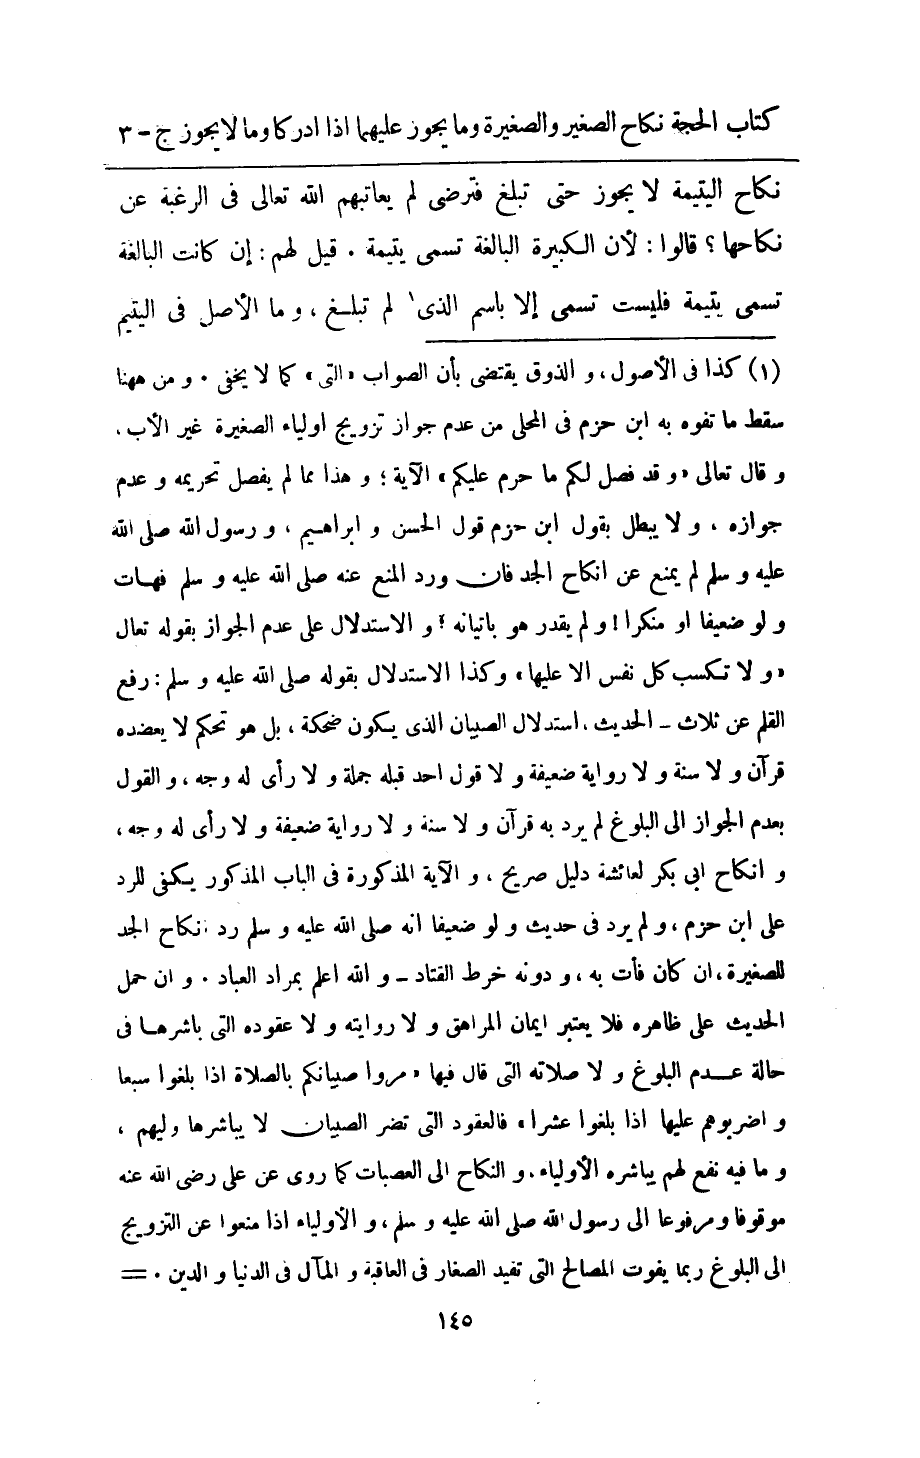 كتاب الحجة نكاح الصغير والصغيرة وما يجوز عليهما اذا ادركا وما لا يجوز ج - ٣
نكاح اليتيمة لا يجوز حتى تبلغ فترضى لم يعاتبهم الله تعالى فى الرغبة عن
نكاحها ؟ قالوا : لأن الكبيرة البالغة تسمى يتيمة . قيل لهم : إن كانت البالغة
تسمى يتيمة فليست تسمى إلا باسم الذى ١ لم تبلغ ، و ما الأصل فى اليتيم
(١) كذا فى الأصول ، و الذوق يقتضى بأن الصواب « التى » كما لا يخفى . و من ههنا
سقط ما تفوه به ابن حزم فى المحلى من عدم جواز تزويج اولياء الصغيرة غير الأب .
و قال تعالى « و قد فصل لكم ما حرم عليكم » الآية ؛ و هذا مما لم يفصل تحريمه و عدم
جوازه ، و لا يبطل بقول ابن حزم قول الحسن و ابراهيم ، و رسول الله صلى الله
عليه و سلم لم يمنع عن انكاح الجد فان ورد المنع عنه صلى الله عليه و سلم فهات
و لو ضعيفا او منكرا ! و لم يقدر هو باتيانه ؟ و الاستدلال على عدم الجواز بقوله تعال
« و لا تكسب كل نفس الا عليها » وكذا الاستدلال بقوله صلى الله عليه و سلم : رفع
القلم عن ثلاث - الحديث . استدلال الصبيان الذى يكون ضحكة ، بل هو تحكم لا يعضده
قرآن و لا سنة و لا رواية ضعيفة و لا قول احد قبله جملة و لا رأى له وجه ، و القول
بعدم الجواز الى البلوغ لم يرد به قرآن و لا سنة و لا رواية ضعيفة و لا رأى له وجه ،
و انكاح ابى بكر لعائشة دليل صريح ، و الآية المذكورة فى الباب المذكور يكفى للرد
على ابن حزم ، و لم يرد فى حديث و لو ضعيفا انه صلى الله عليه و سلم رد انكاح الجد
للصغيرة ، ان كان فأت به ، و دونه خرط القتاد - و الله اعلم بمراد العباد . و ان حمل
الحديث على ظاهره فلا يعتبر ايمان المراهق و لا روايته و لا عقوده التى باشرها فى
حالة عدم البلوغ و لا صلاته التى قال فيها « مروا صبيانكم بالصلاة اذا بلغوا سبعا
و اضربوهم عليها اذا بلغوا عشرا » فالعقود التى تضر الصبيان لا يباشرها وليهم ،
و ما فيه نفع لهم يباشره الأولياء . و النكاح الى العصبات كما روى عن على رضى الله عنه
موقوفا و مرفوعا الى رسول الله صلى الله عليه و سلم ، و الأولياء اذا منعوا عن التزويج
الى البلوغ ربما يفوت المصالح التى تفيد الصغار فى العاقبة و المآل فى الدنيا و الدين . =
١٤٥